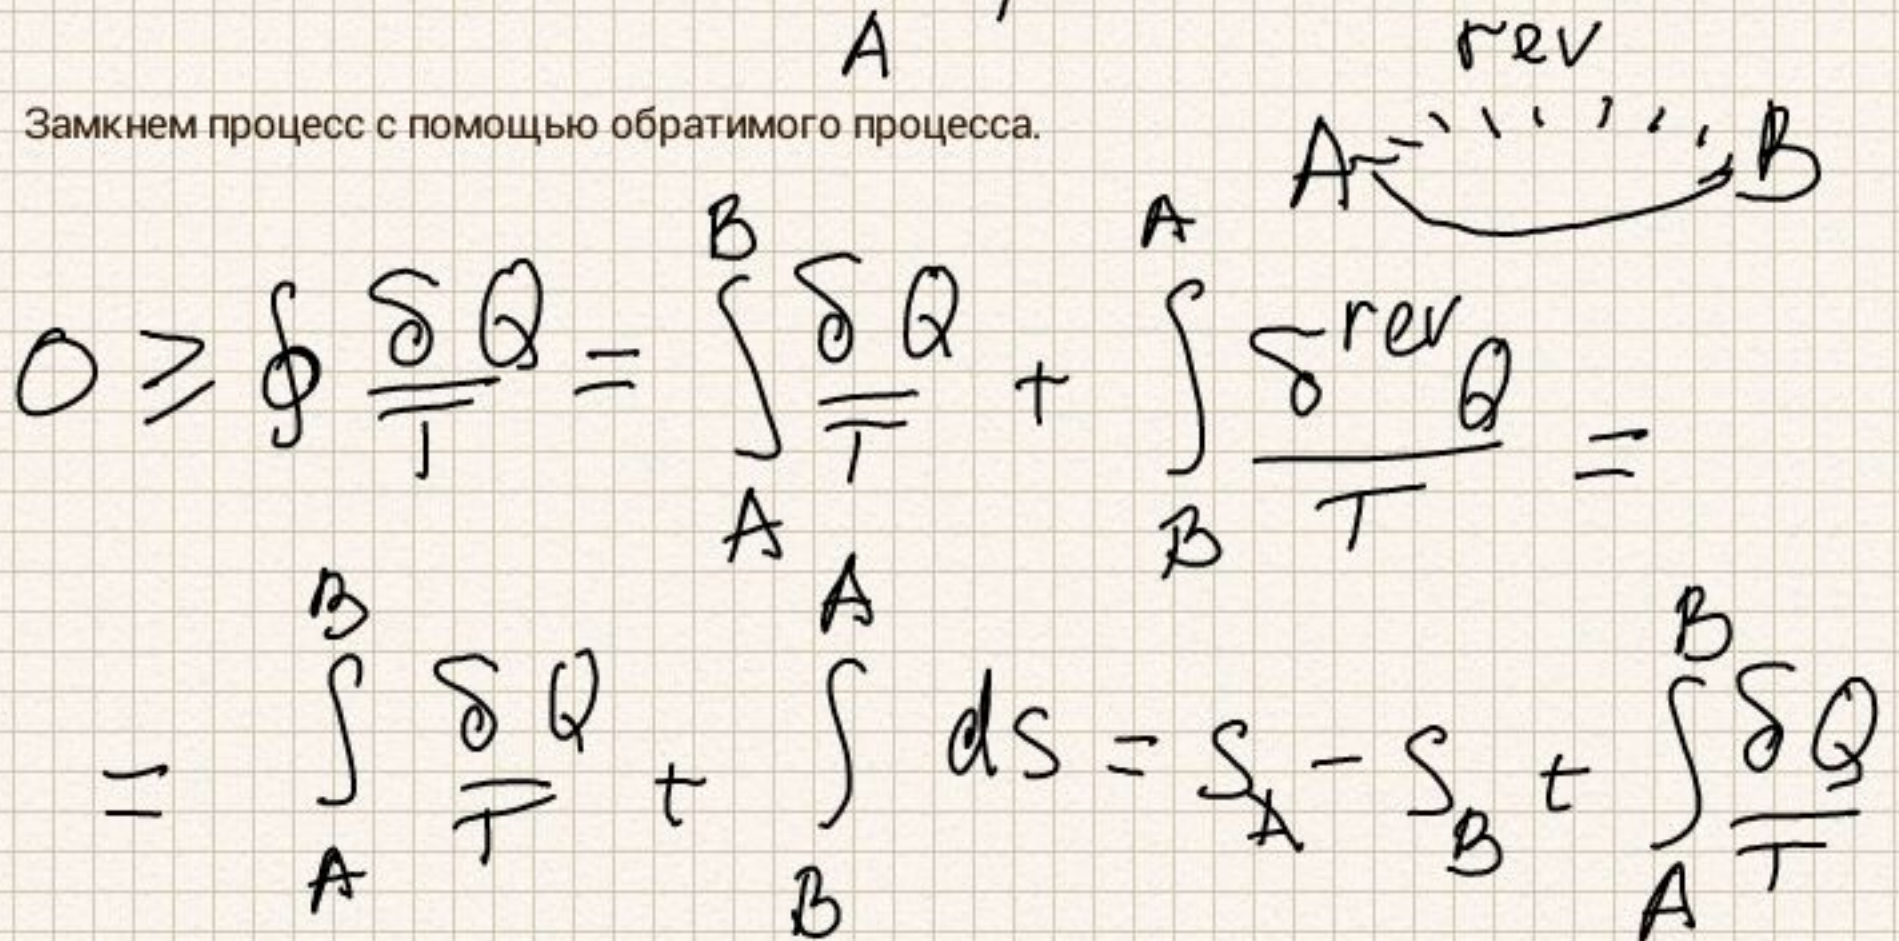 A
rev
Замкнем процесс с помощью обратимого процесса.
A B
0 ≥ ∮ δQ/T = ∫_A^B δQ/T + ∫_B^A δ^rev Q/T =
= ∫_A^B δQ/T + ∫_B^A dS = S_A - S_B + ∫_A^B δQ/T